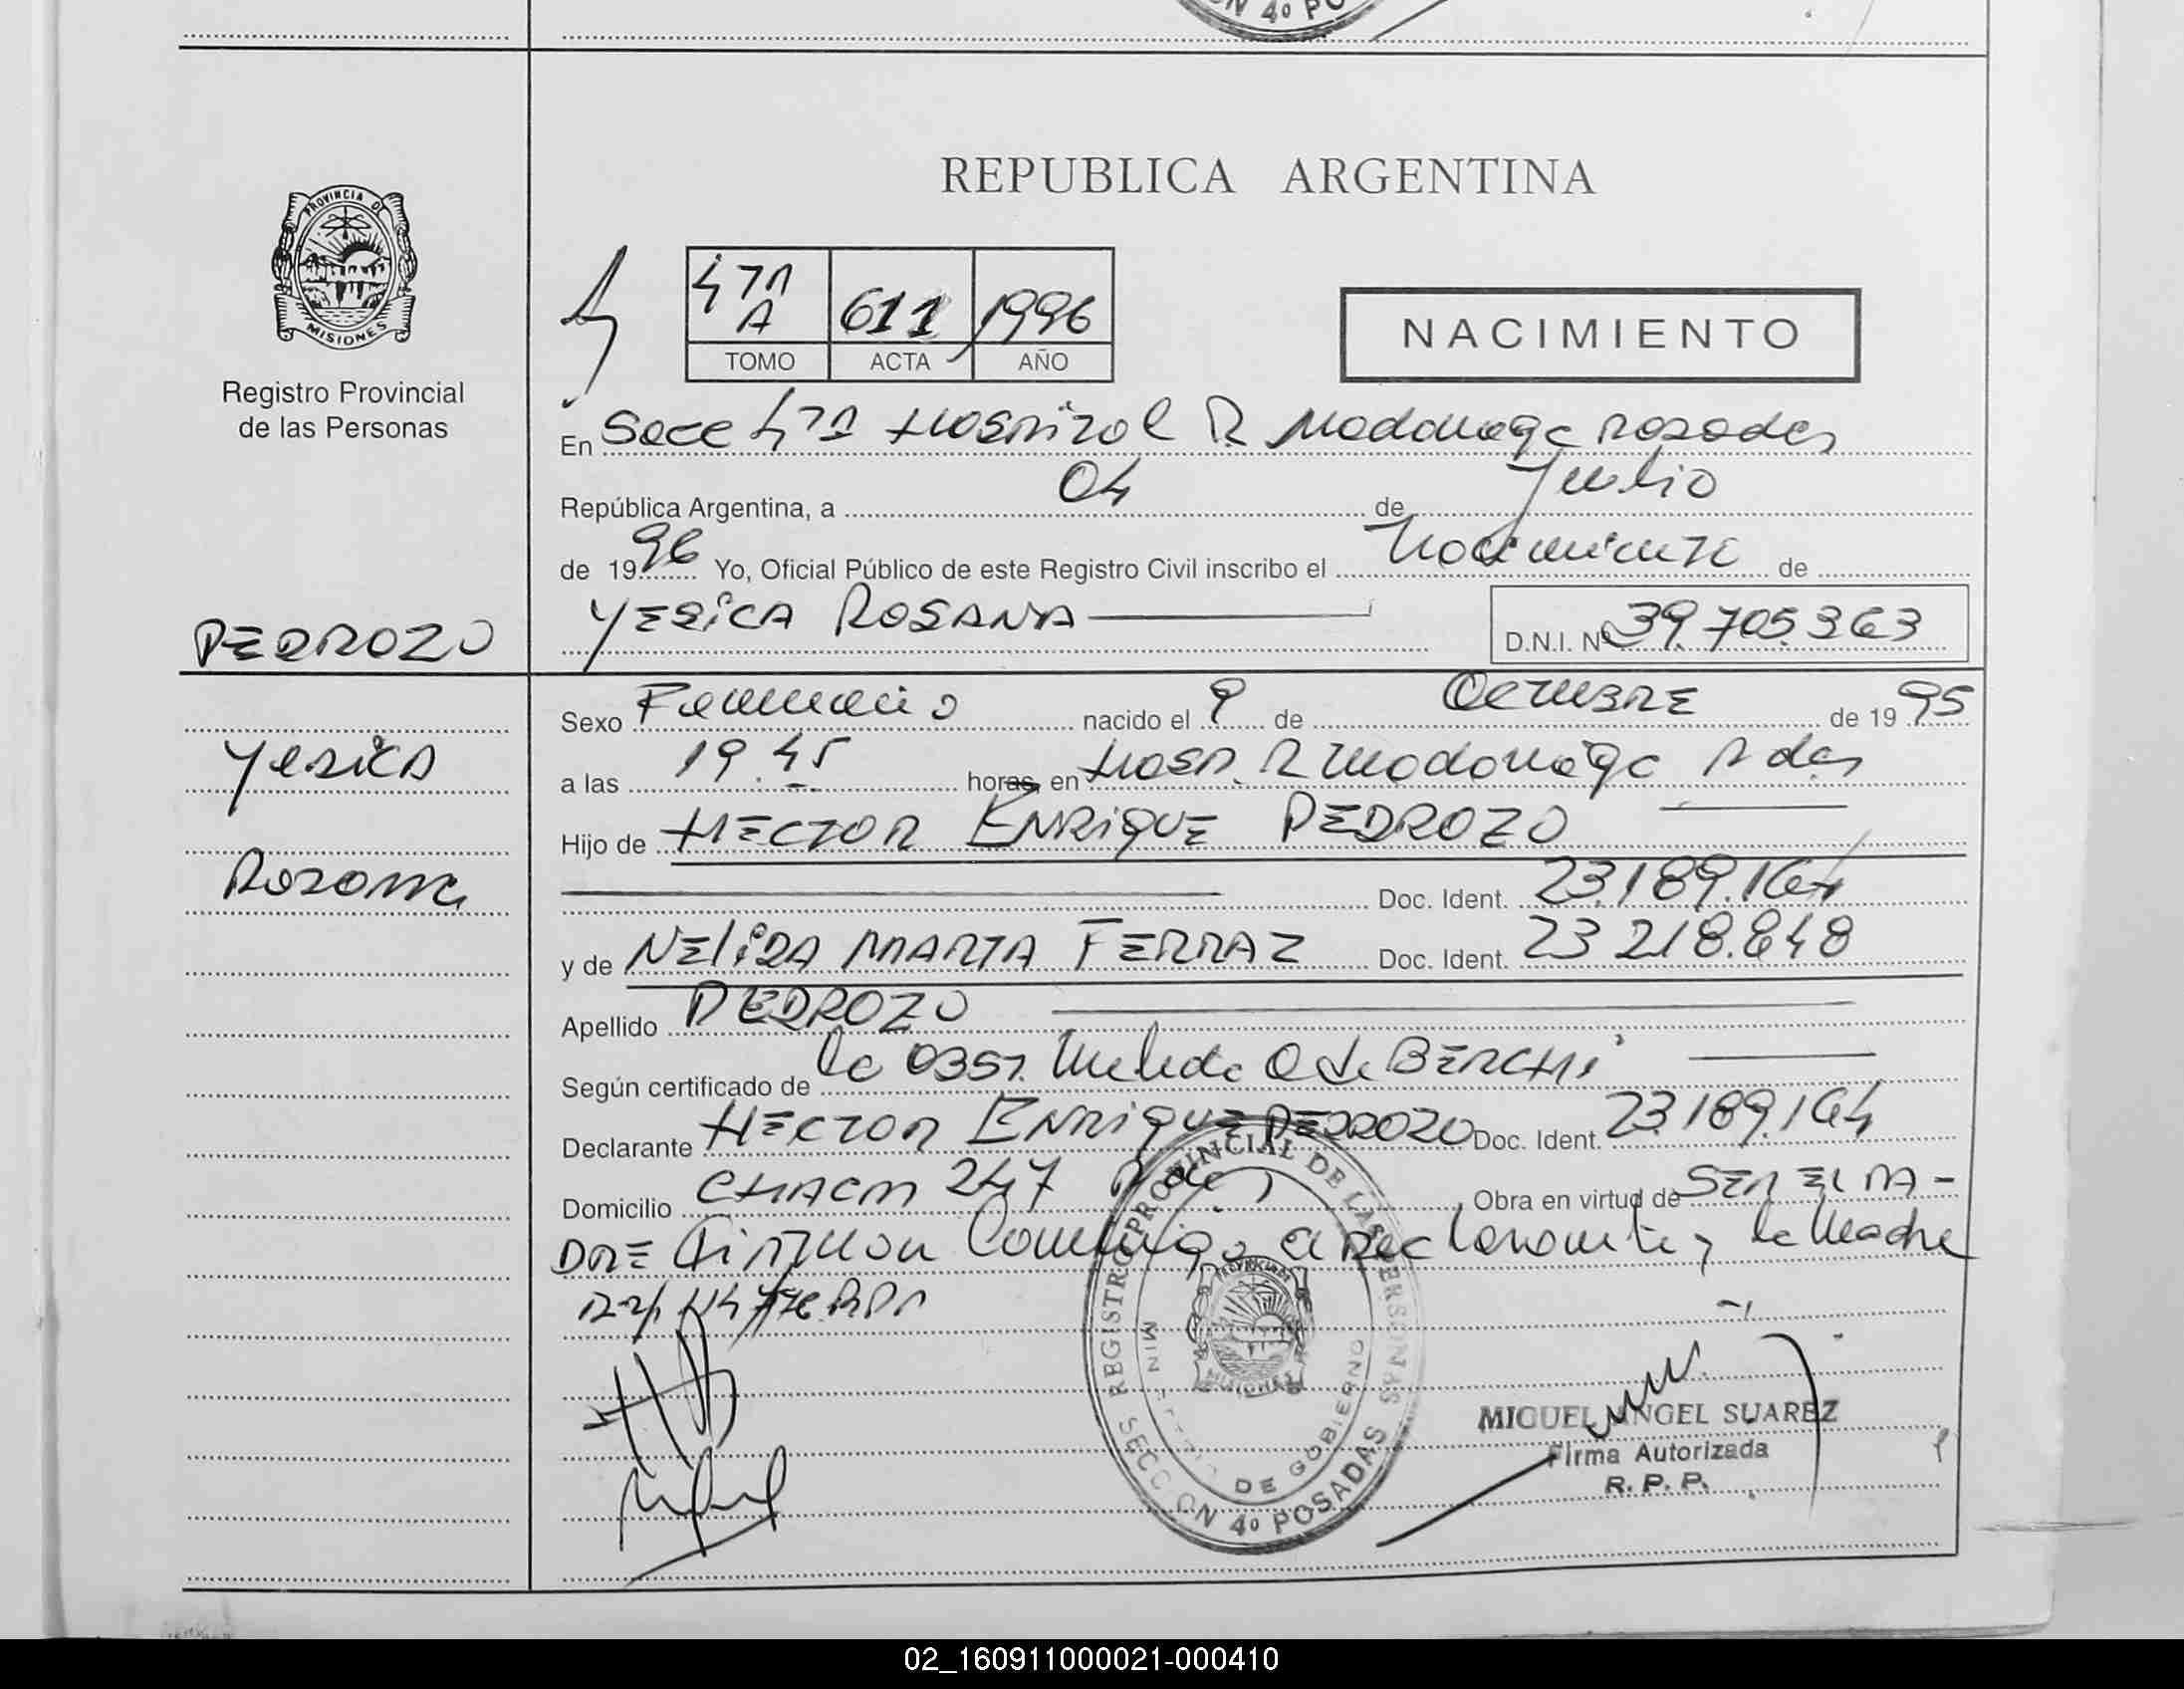 N 4º PO
REPUBLICA ARGENTINA
PROVINCIA DE
MISIONES
Registro Provincial
de las Personas
4ta A 611 1996
TOMO ACTA AÑO
NACIMIENTO
En Secc 4ta Hospital R. Madariaga Posadas
República Argentina, a 04 de Julio
de 1996 Yo, Oficial Público de este Registro Civil inscribo el Nacimiento de
YESICA ROSANA
D.N.I. Nº 39.705.363
PEDROZO
Yesica
Rosana
Sexo Femenino nacido el 9 de OCTUBRE de 1995
a las 19.45 horas, en Hosp. R Madariaga Pdas
Hijo de HECTOR ENRIQUE PEDROZO
Doc. Ident. 23.189.164
y de NELIDA MARTA FERRAZ Doc. Ident. 23 218.848
Apellido PEDROZO
Según certificado de la Obst. Nelida O de BERCHI
Declarante HECTOR ENRIQUE PEDROZO Doc. Ident. 23.189.164
Domicilio 247 Pdas Obra en virtud de SER EL PA-
DRE el Declarante y la Madre
REGISTRO PROVINCIAL DE LAS PERSONAS
DE GOBIERNO
SECCION 4º POSADAS
MISIONES
MIGUEL ANGEL SUAREZ
Firma Autorizada
R. P. P.
02_160911000021-000410